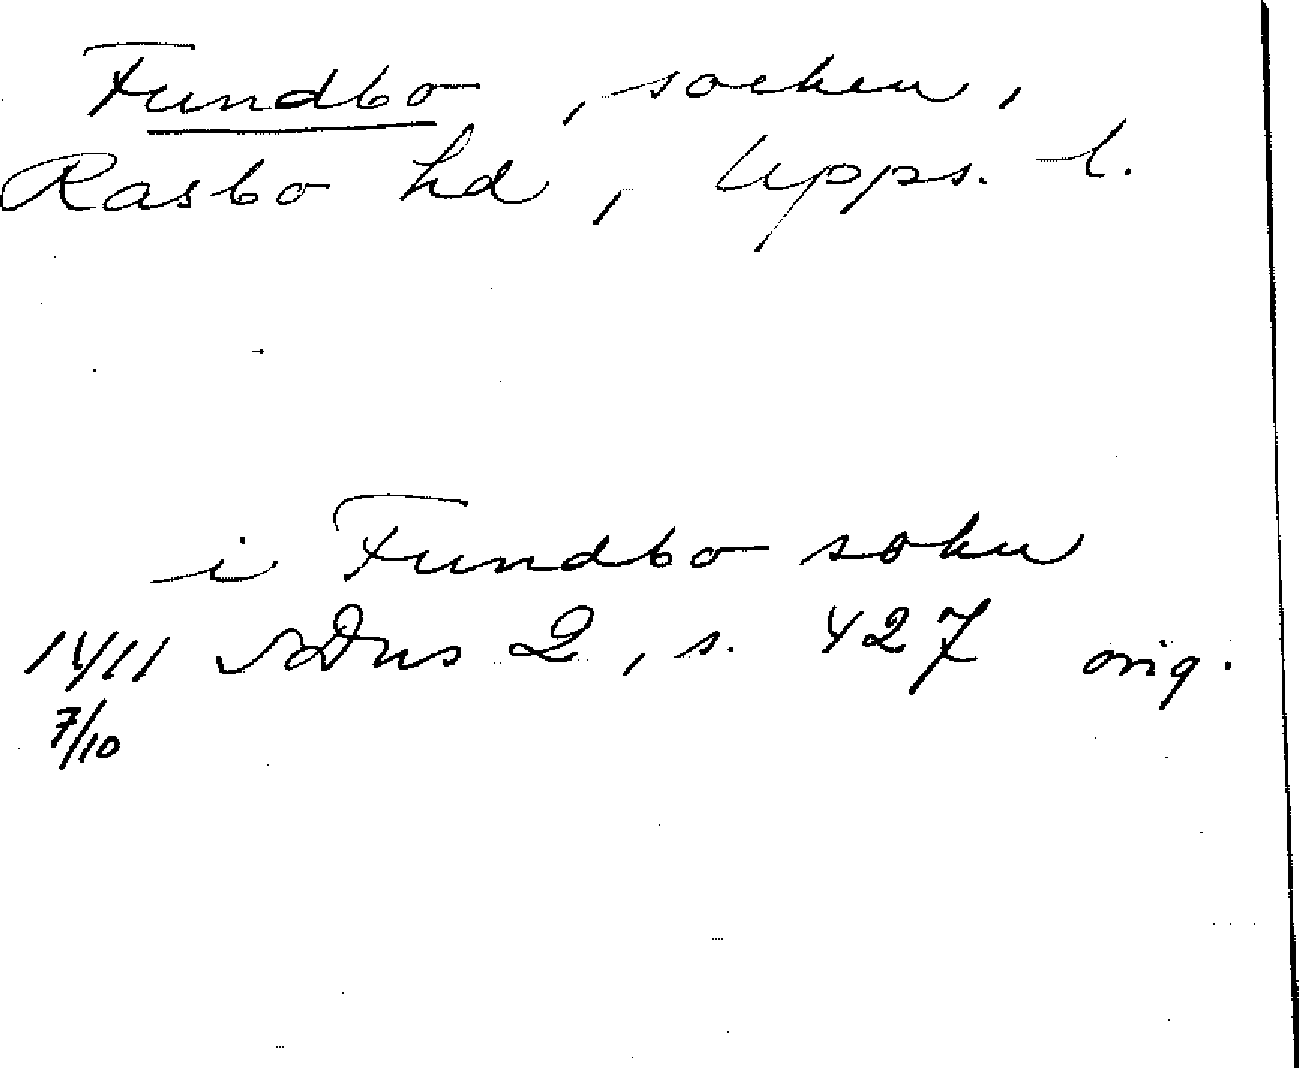 Fundbo, socken,
Rasbo hd, Upps. l.
i Fundbo sokn
1411 SDns 2, s. 427 orig.
7/10